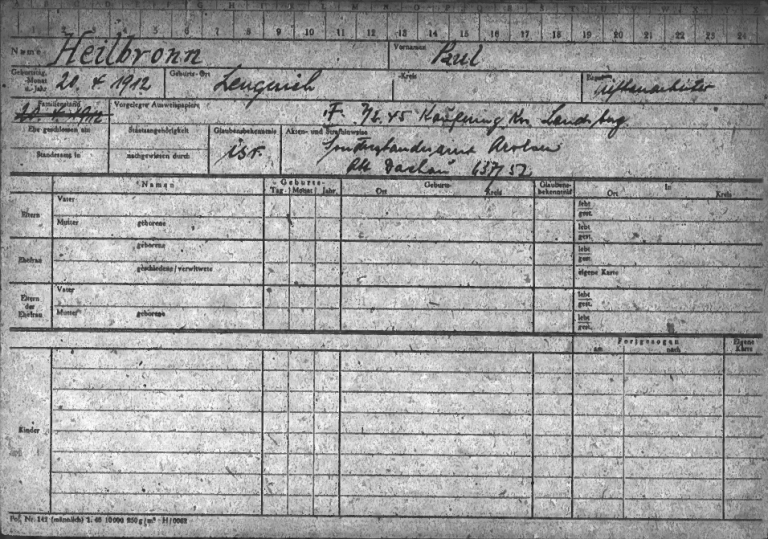 1 2 3 4 5 6 7 8 9 10 11 12 13 14 15 16 17 18 19 20 21 22 23 24
Name: Heilbronn Vorname: Paul
Geburtstag, Monat u. Jahr 20. 4. 1912 Geburts-Ort Lengerich -Kreis
Familienstand Vorgelegte Ausweispapiere
20. 4. 1912 45 Kaufering Kr. Landsbg.
Ehe geschlossen am Staatsangehörigkeit Glaubensbekenntnis Akten- und Strafhinweise
Standesamt in nachgewiesen durch isr. Sonderstandesamt Arolsen
Abt. Dachau
Namen Geburts- Geburts- Glaubensbekenntnis In
Tag Monat Jahr Ort Kreis Ort Kreis
Eltern Vater lebt gest.
Mutter geborene lebt gest.
Ehefrau geborene lebt gest.
geschiedene / verwitwete eigene Karte
Eltern der Ehefrau Vater lebt gest.
Mutter geborene lebt gest.
Fortgezogen Eigene Karte
am nach
Kinder
Pol. Nr. 142 (männlich)